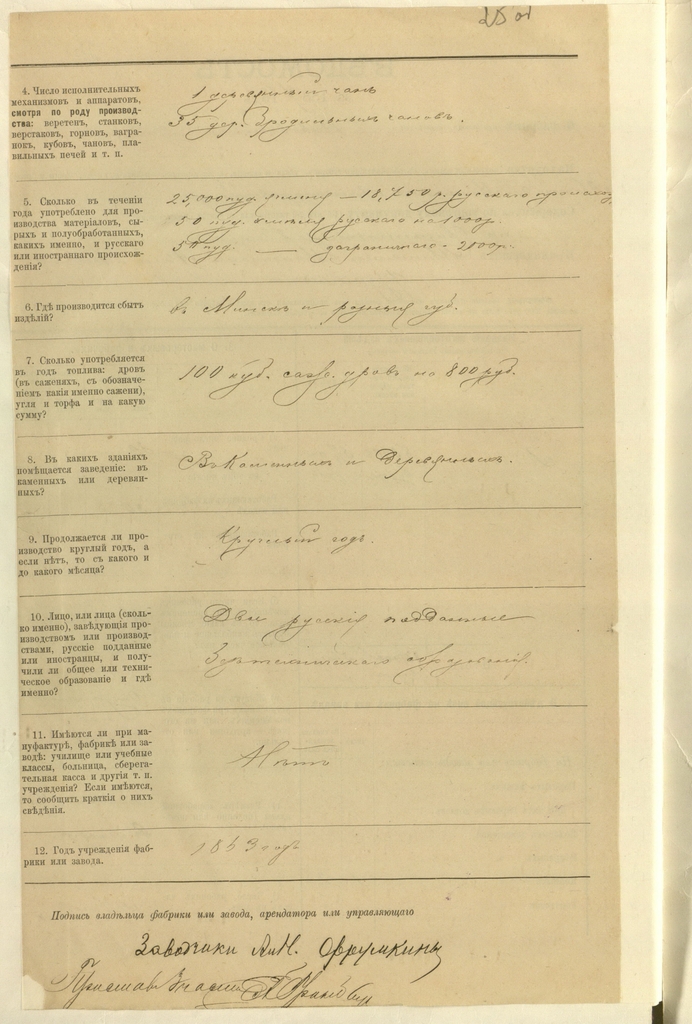 4. Число исполнительныхъ
механизмовъ и аппаратовъ,
смотря по роду производ-
ства: веретенъ, станковъ,
верстаковъ, горновъ, вагра-
нокъ, кубовъ, чановъ, пла-
вильныхъ печей и т. п.
1 деревянный чанъ
35 дер. бродильныхъ чановъ.
5. Сколько въ теченіи
года употреблено для про-
изводства матеріаловъ, сы-
рыхъ и полуобработанныхъ,
какихъ именно, и русскаго
или иностраннаго происхож-
денія?
25,000 пуд. — 18,750 р. русскаго
50 пуд. русскаго на 1000 р.
50 пуд. — заграничнаго - 2000 р.
6. Гдѣ производится сбытъ
издѣлій?
въ Минскѣ и губ.
7. Сколько употребляется
въ годъ топлива: дровъ
(въ саженяхъ, съ обозначе-
ніемъ какія именно сажени),
угля и торфа и на какую
сумму?
100 куб. саж. дровъ на 800 руб.
8. Въ какихъ зданіяхъ
помѣщается заведеніе: въ
каменныхъ или деревян-
ныхъ?
Въ Каменныхъ и Деревянныхъ.
9. Продолжается ли про-
изводство круглый годъ, а
если нѣтъ, то съ какого и
до какого мѣсяца?
Круглый годъ.
10. Лицо, или лица (сколь-
ко именно), завѣдующія про-
изводствомъ или производ-
ствами, русскіе подданные
или иностранцы, и получи-
ли ли общее или техни-
ческое образованіе и гдѣ
именно?
Два русскія подданные
образованія.
11. Имѣются ли при ма-
нуфактурѣ, фабрикѣ или за-
водѣ: училище или учебные
классы, больница, сберега-
тельная касса и другія т. п.
учрежденія? Если имѣются,
то сообщить краткія о нихъ
свѣдѣнія.
Нѣтъ
12. Годъ учрежденія фаб-
рики или завода.
годъ
Подпись владѣльца фабрики или завода, арендатора или управляющаго
Заводчики Фрумкины
Приставъ